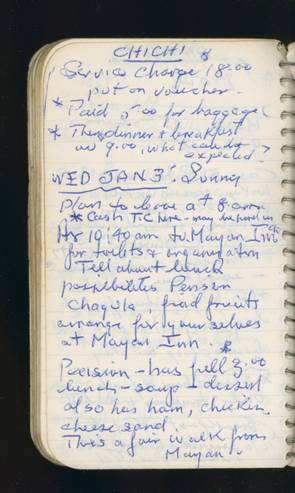 CHICHI
Service Charge 18.00
put on voucher.
* Paid 5.00 for baggage
* Then dinner & breakfast
9.00, what can be
expected?
WED JAN 3. Sunny
Plan to leave at 8
* Cash T.C here - may be hard in
10:40am to Mayan Inn
for toilets &
Tell about lunch
possibilities Pension
Chagula, find fruits
arrange for yourselves
at Mayan Inn. *
Pension - has full 3.00
lunch - soup - dessert
also has ham, chicken
cheese sand.
This a fair walk from
Mayan.